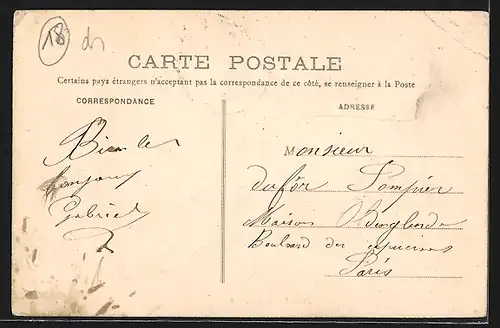 18
CARTE POSTALE
Certains pays étrangers n'acceptant pas la correspondance de ce côté, se renseigner à la Poste
CORRESPONDANCE
Bien le
bonjour
Gabriel
ADRESSE
Monsieur
Maison
Boulevard des capucines
Paris